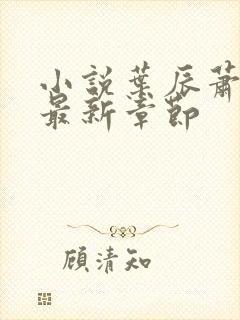 小説葉辰蕭
最新章節
顧清知